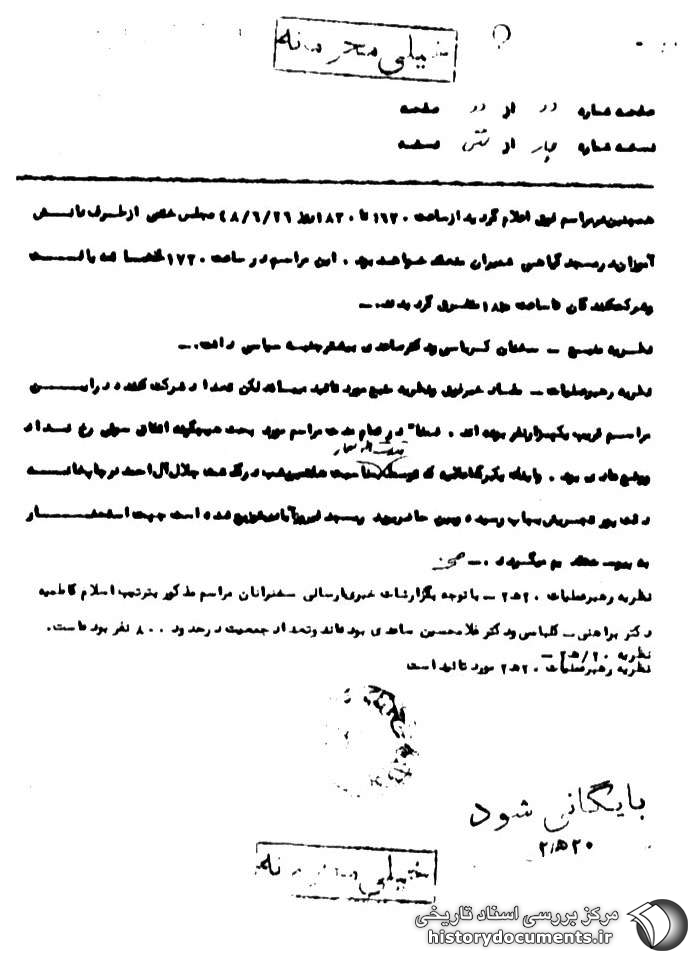 خیلی محرمانه
صفحه شماره دو از دو صفحه
نسخه شماره چهار از شش نسخه
همچنین در مراسم فوق اعلام گردید از ساعت ۱۶۳۰ تا ۱۸۳۰ روز ۴۸/۶/۲۶ مجلس ختمی از طرف دانش
آموزان در مسجد گیاهی شمیران منعقد خواهد بود . این مراسم در ساعت ۱۷۳۰ خاتمه یافت
و شرکت‌کنندگان تا ساعت متفرق گردیدند.ـ
نظریه منبع ـ سخنان و دکتر ساعدی بیشتر جنبه سیاسی داشت.ـ
نظریه رهبر عملیات ـ مفاد خبر فوق و نظریه منبع مورد تائید میباشد لکن تعداد شرکت کننده در ایـن
مراسم قریب یکهزار نفر بوده اند . ضمناً در تمام مدت مراسم مورد بحث هیچگونه اتفاق سوئی رخ نـداد
و وضع عادی بود . که درگذشت جلال آل احمد در چاپخانـه
بچاپ رسیده و بین حاضرین در مسجد فیروزآبادی توزیع شده است جهت استحضـار
به پیوست تقدیم میگردد .ـ
نظریه رهبر عملیات ۲۰ﻫ۲ ـ با توجه بگزارشات خبری ارسالی سخنرانان مراسم مذکور بترتیب اسلام کاظمیه
دکتر براهنی ـ کلباسی و دکتر غلامحسین ساعدی بوده‌اند و تعداد جمعیت در حدود ۸۰۰ نفر بوده است.
نظریه ۲۰/ﻫ۲ ـ
نظریه رهبر عملیات ۲۰ﻫ۲ مورد تائید است
بایگانی شود
۲۰ﻫ۲
خیلی محرمانه
مرکز بررسی اسناد تاریخی
historydocuments.ir